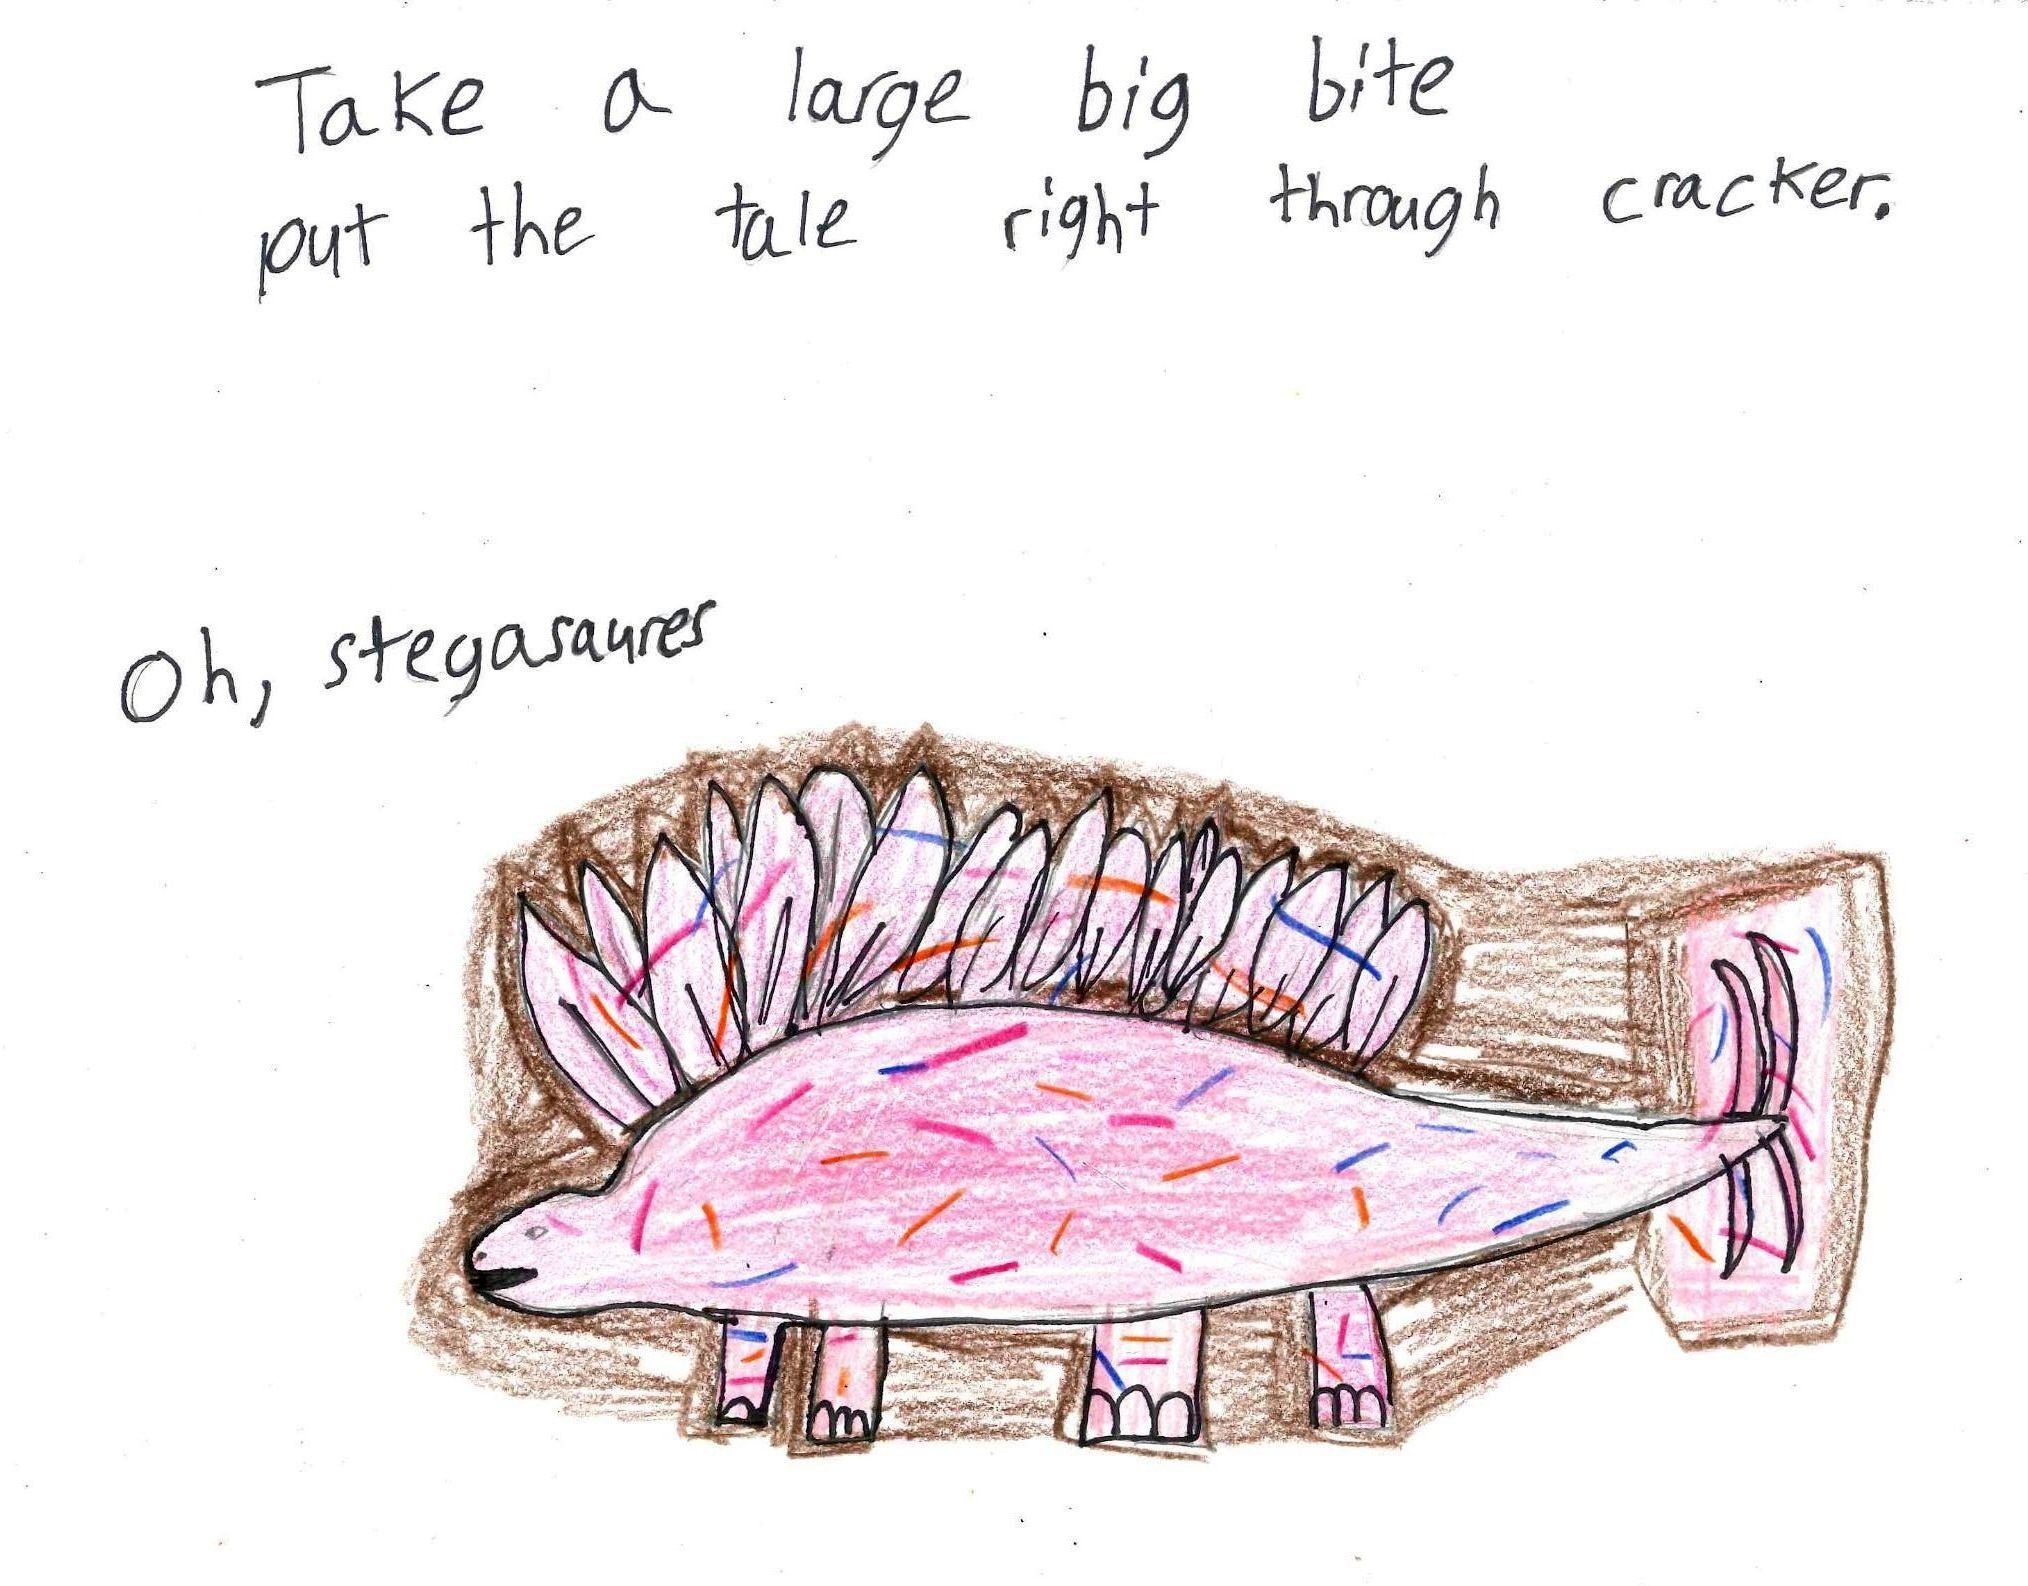 Take a large big bite
put the tale right through cracker.
Oh, stegasaures